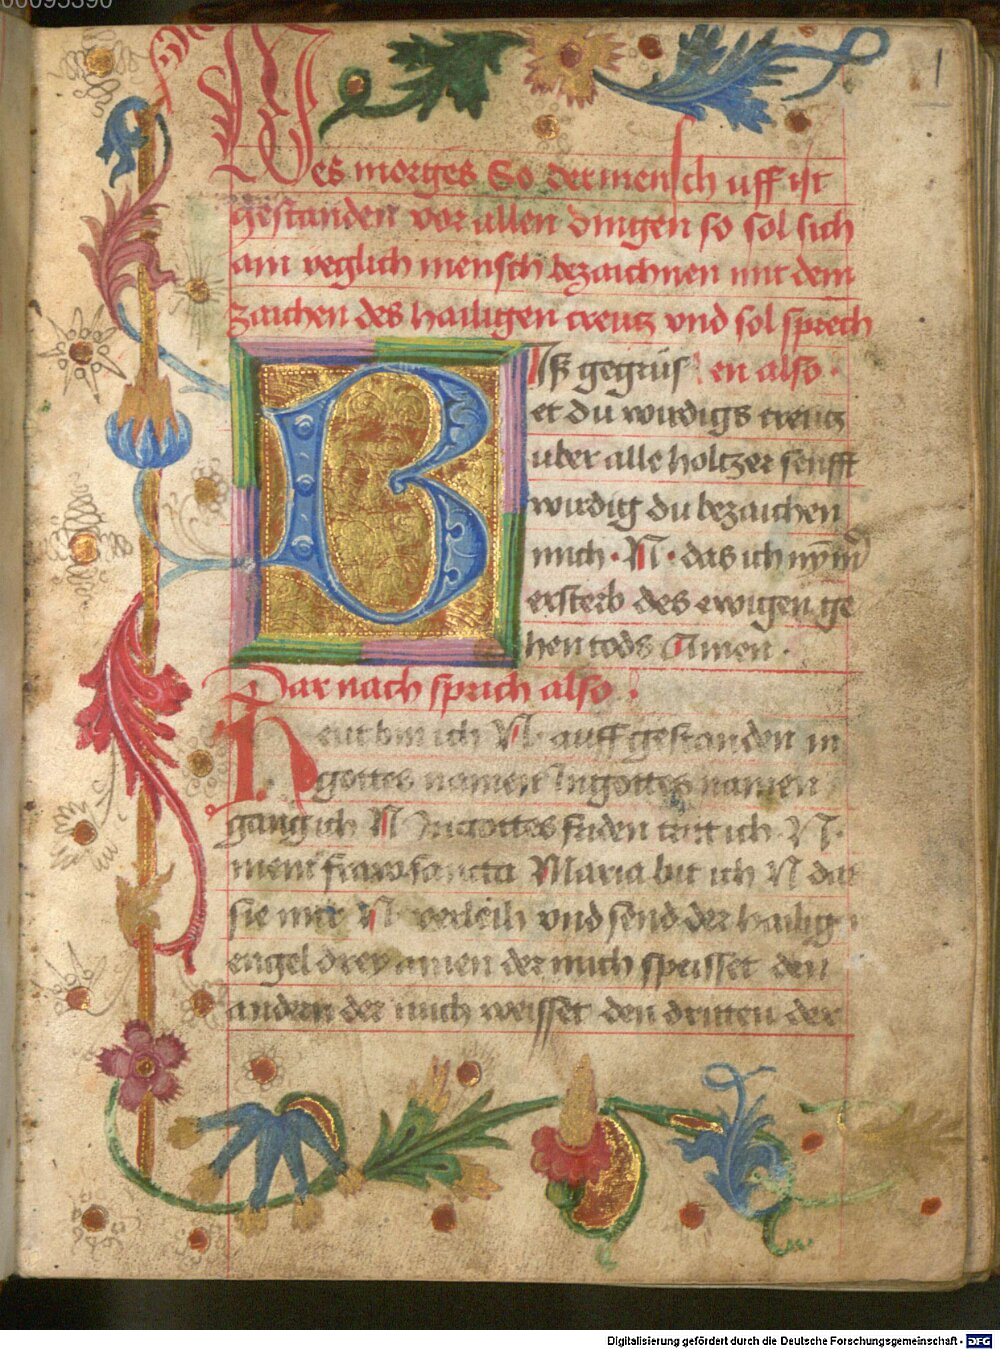 00095390
1
Des morges So der mensch uff ist
gestanden vor allen dingen so sol sich
ain yeglich mensch bezaichnen mit dem
zaichen des hailigen creutz vnd sol sprech
en also ·
BIsz gegrüs
et du wirdigs creutz
uber alle holtzer senfft
wirdig du bezaichen
mich · N · das ich nym̄
ersterb des ewigen ge
hen tods Amen ·
Dar nach sprich also ·
Heut bin ich N · auff gestanden in
gottes namen Jn gottes namen
gang ich N Jn gottes friden tritt ich · N ·
mein fraw sancta Maria bit ich N das
sie mir N verleih vnd send der hailig
engel drey ainen der mich speisset den
andern der mich weisset den dritten der
Digitalisierung gefördert durch die Deutsche Forschungsgemeinschaft - DFG